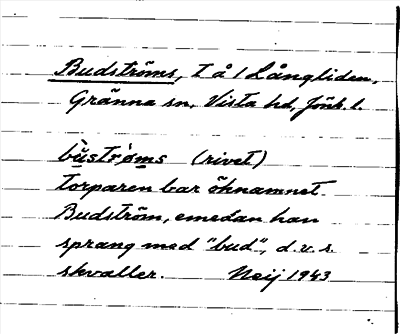 Budströms, T å / Långliden,
Gränna sn, Vista hd, Jönk. l.
bùstrøms (rivet)
torparen bar öknamnet
Budström, emedan han
sprang med "bud", d.v.s.
skvaller. Neij 1943